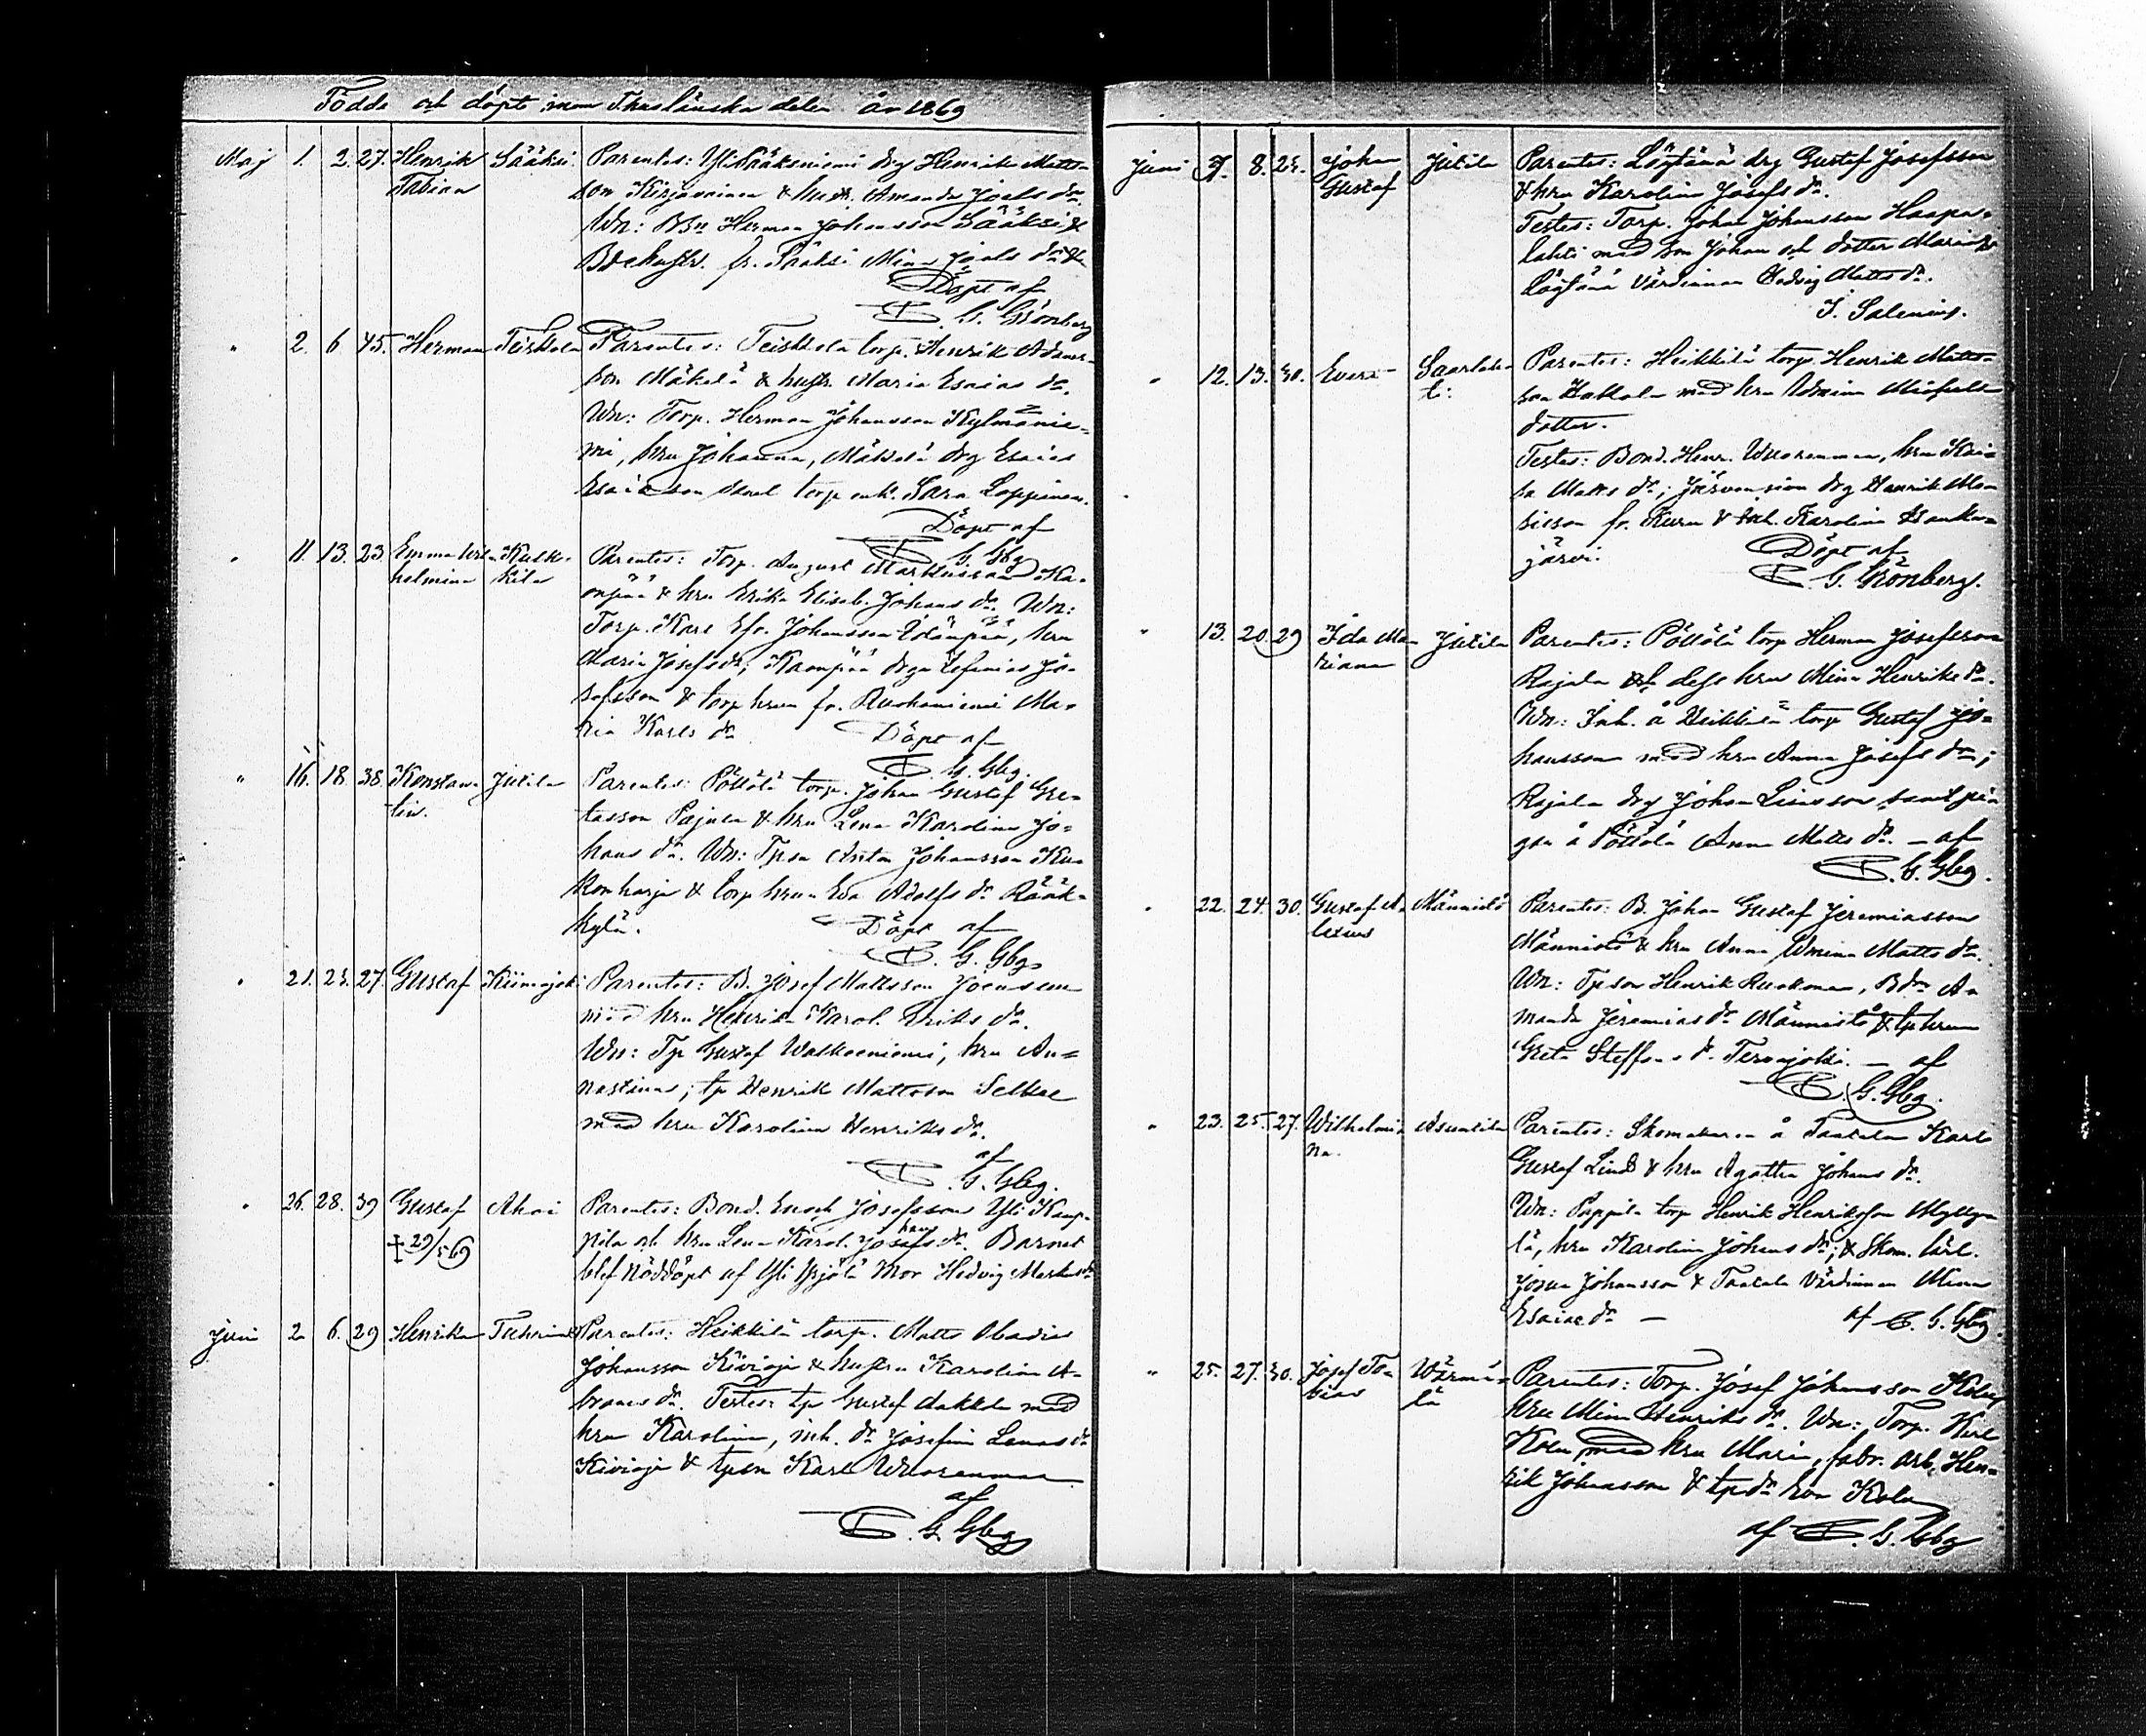 Födde och döpte inom Thuslänska delen år 1869
Maj 1. 2. 27. Henrik Sääksi. Parentes: Yli Sääksniemi drg Henrik Matts-
Fabian son Kirjavainen & hust. Amanda Joels dr.
Wn: Bsn Herman Johansson Sääksi &
Bdehustr. fr. Sääksi Mina Joels dr
Döpt af
G. Grönberg
" 2. 6 45. Herman Teiskola Parentes: Teiskola torp. Henrik Adams-
son Mäkelä & hustr. Maria Esaias dr.
Wn: Torp. Herman Johansson Kylmänie-
mi, hru Johanna, Mäkelä drg Esaias
Esaiasson samt torp enk. Sara Loppinen.
Döpt af
G. Gbg
" 11. 13. 23 Emma Wil- Kulk- Parentes: Torp. August Markusson Ka-
helmina kila & hru Erika Elisab. Johans dr. Wn:
Torp. Karl Efr. Johansson, hru
Maria Josefs dr, Kaanpää
Josefsson & torp hrun fr. Ruohoniemi Ma-
ria Karls dr Döpt af
G. Gbg.
" 16. 18 38 Konstan- Jutila Parentes: Pöllölä torp. Johan Gustaf
tin. Pajula & hru Lena Karolina Jo-
hans dr. Wn: Tpsn Anton Johansson Ku-
konharja & torp hrun Eva Adolfs dr Rääk-
kylä. Döpt af
G. Gbg
" 21. 23. 27. Gustaf Kiimajoki Parentes: B. Josef Mattsson Joensuu
med hru Henrika Karol. Eriks dr.
Wn: Tp Gustaf Walkeeniemi, hru An-
nastina; tp Henrik Mattsson Selkee
med hru Karolina Henriks dr.
af
G. Gbg.
" 26. 28. 39 Gustaf Ahoi Parentes: Bond. Enoch Josefsson Yli Kamp-
† 29/5 69 pila och hru Lena Karol. Josefs dr. Barnet
blef nöddöpt af Yli Ypjölä Mor Hedvig Markus dr
Juni 2 6. 29 Henrika Parentes: Heikkilä torp. Matts Abadias
Johansson Kivioja & hustru Karolina A-
brams dr. Testes: tp Gustaf Aakkola med
hru Karolina, inh. dr Josefina Lenas dr
Kivioja & tpsn Karl Wuorenmaa
af
G. Gbg
Juni 7. 8. 24. Johan Jutila Parentes: Löytänä drg Gustaf Josefsson
Gustaf & hru Karolina Josefs dr.
Testes: Torp. Johan Johansson Haapa-
lahti med son Johan och dotter Maria &
Löytänä Värdinnan Hedvig Matts dr.
J. Salenius.
" 12. 13. 30. Evert Saarlah- Parentes: Heikkilä torp Henrik Matts-
ti. son Hakkola med hru Wmina Michaels
dotter.
Testes: Bond. Henr. Wuorenmaa, hru Kai-
sa Matts dr; Järvensivu drg Henrik
fr. Kuru & inh. Karolina Hanka-
järvi. Döpt af
G. Grönberg.
" 13. 20. 29 Ida Ma- Jutila Parentes: Pöllölä torp Herman Josefsson
riana Rajala och dess hru Mina Henriks dr.
Wn: Inh. å Heikkilä torp Gustaf Jo-
hansson med hru Anna Josefs dr;
Rajala drg Johan Linsson samt pi-
gan å Pöllölä Anna Matts dr. — af
G. Gbg.
" 22. 24. 30. Gustaf A- Männistö Parentes: B. Johan Gustaf Jeremiasson
lexius Männistö & hru Anna Wmina Matts dr.
Wn: Tpson Henrik Ruokonen, Bdr A-
manda Jeremias dr Männistö & tphrun
Greta Steffans dr Tervajoki. — af
G. Gbg.
" 23. 25. 27. Wilhelmi- Asuntila Parentes: Skomakaren å Taatala Karl
na. Gustaf Lind & hru Agatha Johans dr.
Wn: Pappila torp Henrik Henriksson Myllym
lä, hru Karolina Johans dr; & Skom. lärl.
Josua Johansson & Taatala Värdinnan Mina
Esaiae dr — af G. Gbg.
" 25. 27. 30. Josef To- Wärmä- Parentes: Torp. Josef Johansson Kolu
bias lä hru Mina Henriks dr. Wn: Torp. Karl
Kolu med hru Maria, fabr. arb. Hen-
rik Johansson & tpdr Eva Kolu
af G. Gbg